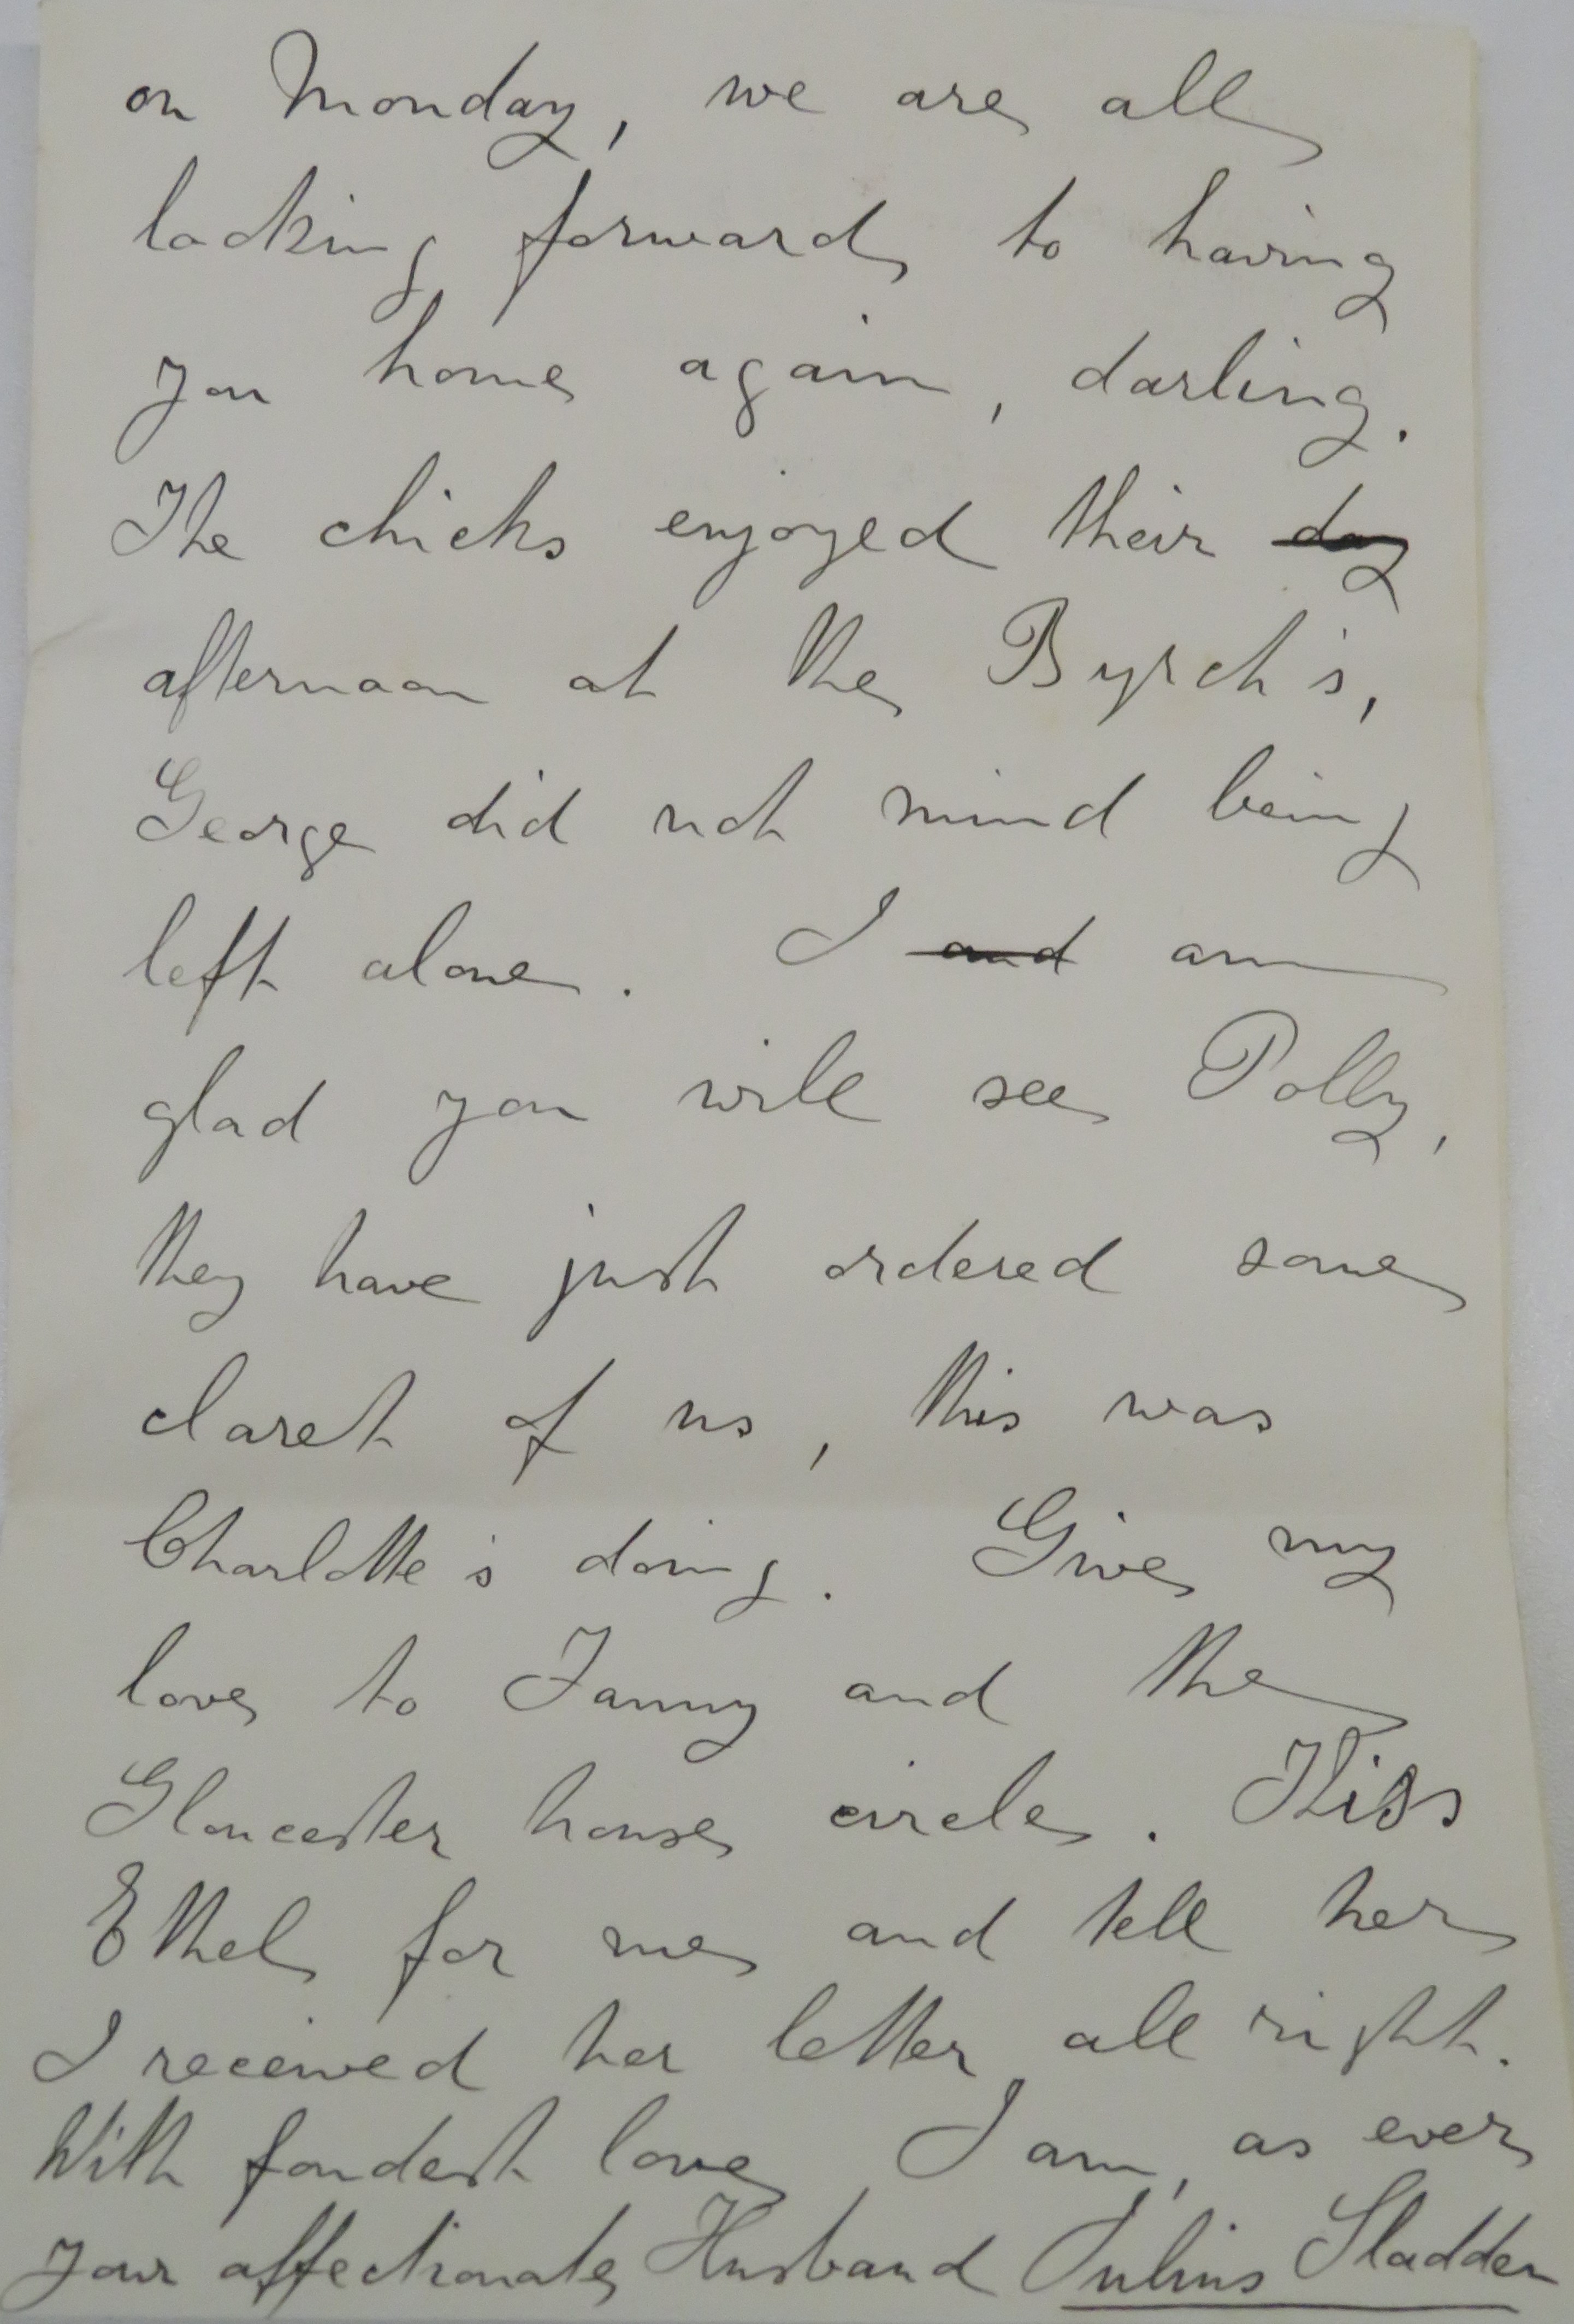 on Monday, we are all
looking forward to having
you home again, darling.
The chicks enjoyed their ~~day~~
afternoon at the Byrch's,
George did not mind being
left alone. I ~~and~~ am
glad you will see Polly,
they have just ordered some
claret of us, this was
Charlotte's doing. Give my
love to Fanny and the
Gloucester house circle. Kiss
Ethel for me and tell her
I received her letter all right.
With fondest love I am, as ever
your affectionate Husband Julius Sladden